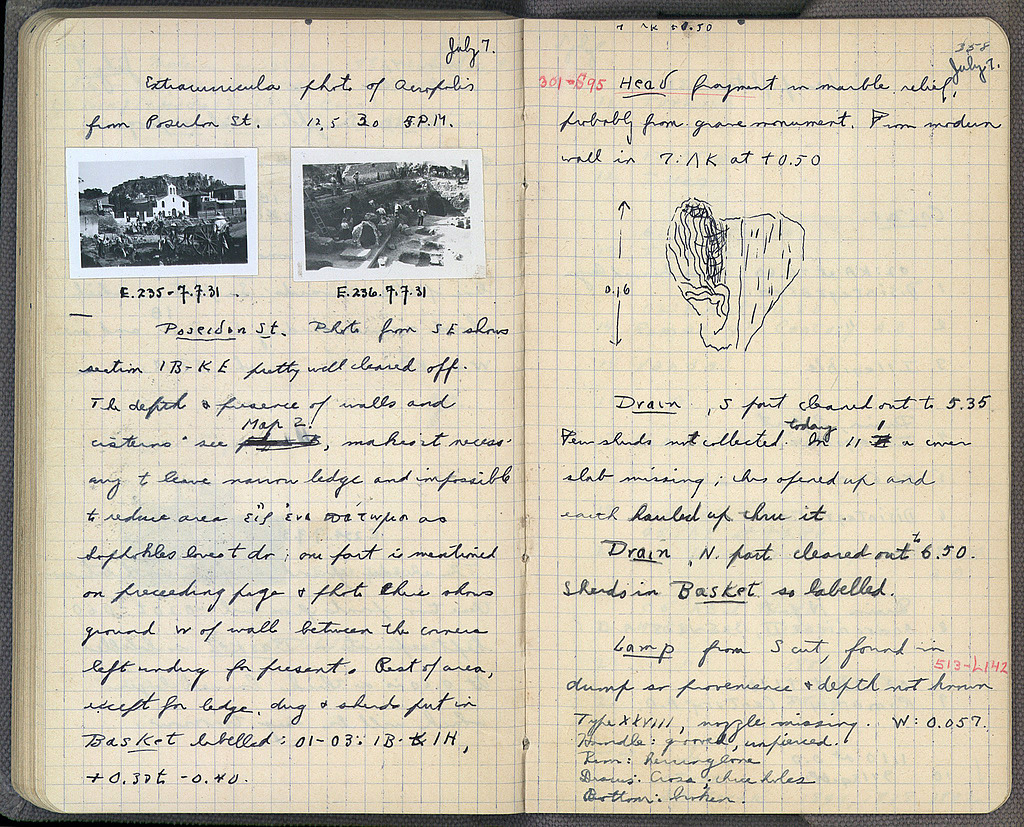 July 7.
Extramuricula photo of Acropolis
from Poseidon St. 12,5 30 5 P.M.
E.235-7.7.31
E.236.7.7.31
Poseidon St. Photo from SE shows
section 1B-KE pretty well cleared off.
The depth & presence of walls and
Map 2.
cisterns see, makes it necess-
ary to leave narrow ledge and impossible
to reduce area εἰς ἕνα πάτωμα as
Sophokles loves t do; one part is mentioned
on preceding page & photo shows
ground W of wall between the corners
left undug for present. Rest of area,
except for ledge, dug & sherds put in
Basket labelled: 01-03: 1B-1H,
+0.30 to -0.40.
7 ΛK +0.50
358
July 7.
301-S95 Head fragment in marble relief,
probably from grave monument. From modern
wall in 7:ΛK at +0.50
0.16
Drain, S part cleared out to 5.35
today
Few sherds not collected. In 11 a cover
slab missing; this opened up and
earth hauled up thru it.
Drain, N. part cleared out to 6.50.
Sherds in Basket so labelled.
Lamp from S cut, found in
513-L142
dump so provenience & depth not known
Type XXVIII, nozzle missing. W: 0.057.
Handle: grooved, unpierced.
Rim: herringbone
Discus: Cross; three holes
Bottom: broken.